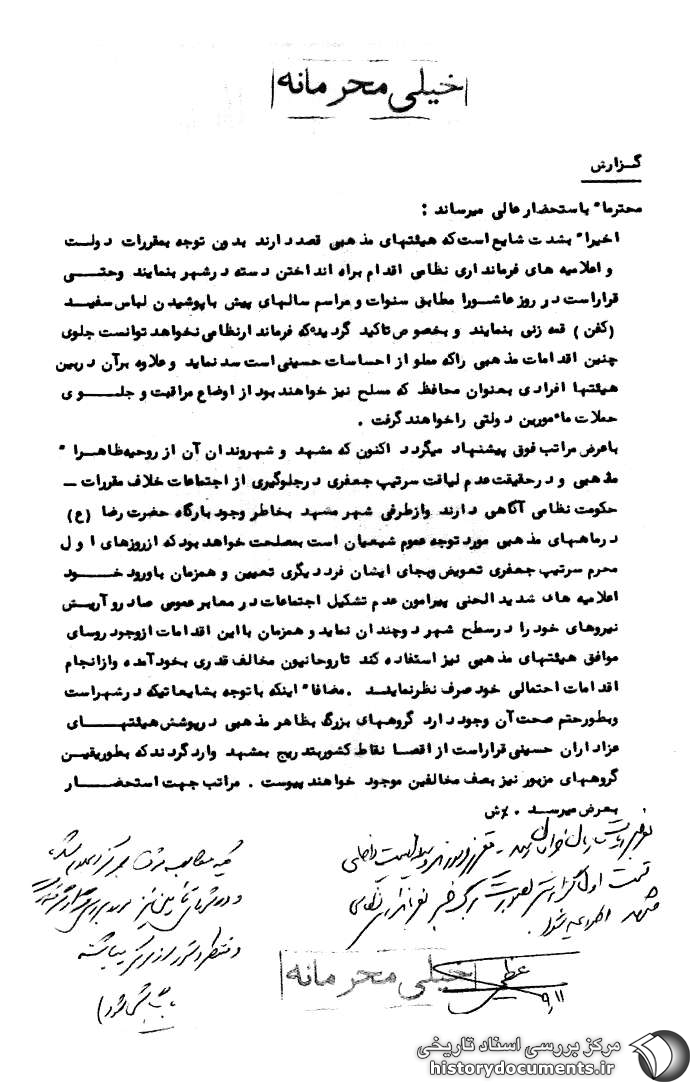 خیلی محرمانه
گزارش
محترما" باستحضار عالی میرساند :
اخیرا" بشدت شایع است که هیئتهای مذهبی قصد دارند بدون توجه بمقررات دولت
و اعلامیه های فرمانداری نظامی اقدام براه انداختن دسته در شهر بنمایند وحتی
قراراست در روز عاشورا مطابق سنوات و مراسم سالهای پیش باپوشیدن لباس سفید
(کفن) قمه زنی بنمایند و بخصوص تاکید گردیده که فرماندار نظامی نخواهد توانست جلوی
چنین اقدامات مذهبی راکه مملو از احساسات حسینی است سد نماید و علاوه برآن دربین
هیئتها افرادی بعنوان محافظ که مسلح نیز خواهند بود از اوضاع مراقبت و جلوی
حملات ما"مورین دولتی راخواهند گرفت .
باعرض مراتب فوق پیشنهاد میگردد اکنون که مشهد و شهروندان آن از روحیه ظاهرا"
مذهبی و درحقیقت عدم لیاقت سرتیپ جعفری درجلوگیری از اجتماعات خلاف مقررات –
حکومت نظامی آگاهی دارند وازطرفی شهر مشهد بخاطر وجود بارگاه حضرت رضا (ع)
درماههای مذهبی مورد توجه عموم شیعیان است بمصلحت خواهد بود که ازروزهای اول
محرم سرتیپ جعفری تعویض وبجای ایشان فرد دیگری تعیین و همزمان باورود خود
اعلامیه های شدید الحنی پیرامون عدم تشکیل اجتماعات در معابر عمومی صادر و آرایش
نیروهای خود را درسطح شهر دوچندان نماید و همزمان با این اقدامات ازوجود روسای
موافق هیئتهای مذهبی نیز استفاده کند تا روحانیون مخالف قدری بخود آمده وازانجام
اقدامات احتمالی خود صرف نظرنمایند . مضافا" اینکه با توجه بشایعاتیکه در شهراست
وبطورحتم صحت آن وجود دارد گروههای بزرگ بظاهر مذهبی درپوشش هیئتهای
عزاداران حسینی قراراست از اقصا نقاط کشور بتدریج بمشهد وارد گردند که بطوریقین
گروههای مزبور نیز بصف مخالفین موجود خواهند پیوست . مراتب جهت استحضار
بعرض میرسد . ش
قسمت اول گزارش بصورت برگ خبر بفرمانداری نظامی
مشهد اعلام شود
خیلی محرمانه
۹/۱۱
مرکز بررسی اسناد تاریخی
historydocuments.ir